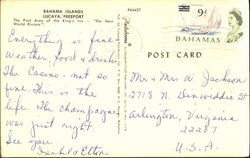 BAHAMA ISLANDS
LUCAYA, FREEPORT
The Pool Area of the King's Inn - "The New World Riviera"
P64437
9d
BAHAMAS
POST CARD
Everything is fine
Weather, food & drinks
The Casino - not so
fine. This is the
life. The champagne
was just right
See you
Isabel & Elton
Mr & Mrs W. Jackson
2718 N. Dinwiddie St
Arlington, Virginia
22207
U.S.A.